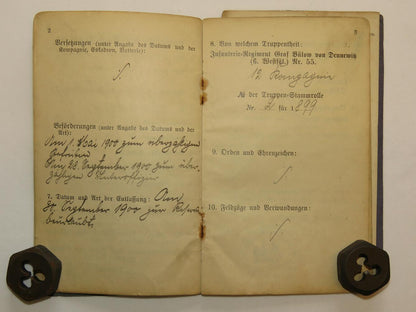 2
Versetzungen (unter Angabe des Datums und der
Kompagnie, Eskadron, Batterie):
Beförderungen (unter Angabe des Datums und der
Art):
Am 1. Mai 1900 zum überzähligen
Gefreiten
Am 22. September 1900 zum über-
zähligen Unteroffizier
7. Datum und Art der Entlassung: Am
22. September 1900 zur Reserve
beurlaubt.
3
8. Von welchem Truppentheil:
Infanterie-Regiment Graf Bülow von Dennewitz
(6. Westfäl.) Nr. 55.
12. Kompagnie
In der Truppen-Stammrolle
Nr. für 1899
9. Orden und Ehrenzeichen:
10. Feldzüge und Verwundungen: